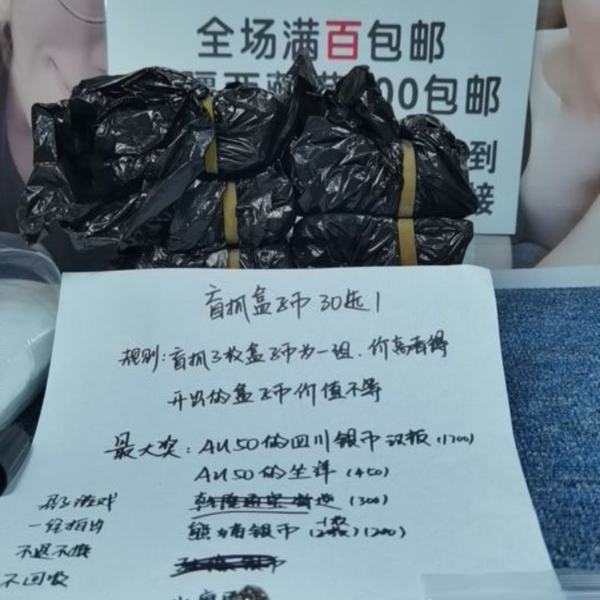 全场满百包邮
00包邮
到
接
盲抓盒子币 30选1
规则:盲抓3枚盒子币为一组,价高者得
开出的盒子币价值不等
最大奖:AU50的四川银币汉板(1700)
AU50的坐洋(450)
(300)
熊 银币 (200)
游戏
一经拍出
不退不换
不回收